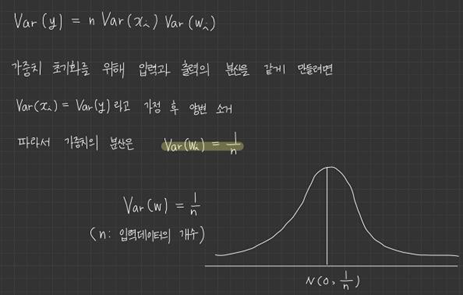 Var(y) = n Var(xᵢ) Var(wᵢ)
가중치 초기화를 위해 입력과 출력의 분산을 같게 만들려면
Var(xᵢ) = Var(y) 라고 가정 후 양변 소거
따라서 가중치의 분산은 Var(wᵢ) = 1/n
Var(w) = 1/n
(n: 입력데이터의 개수)
N(0, 1/n)